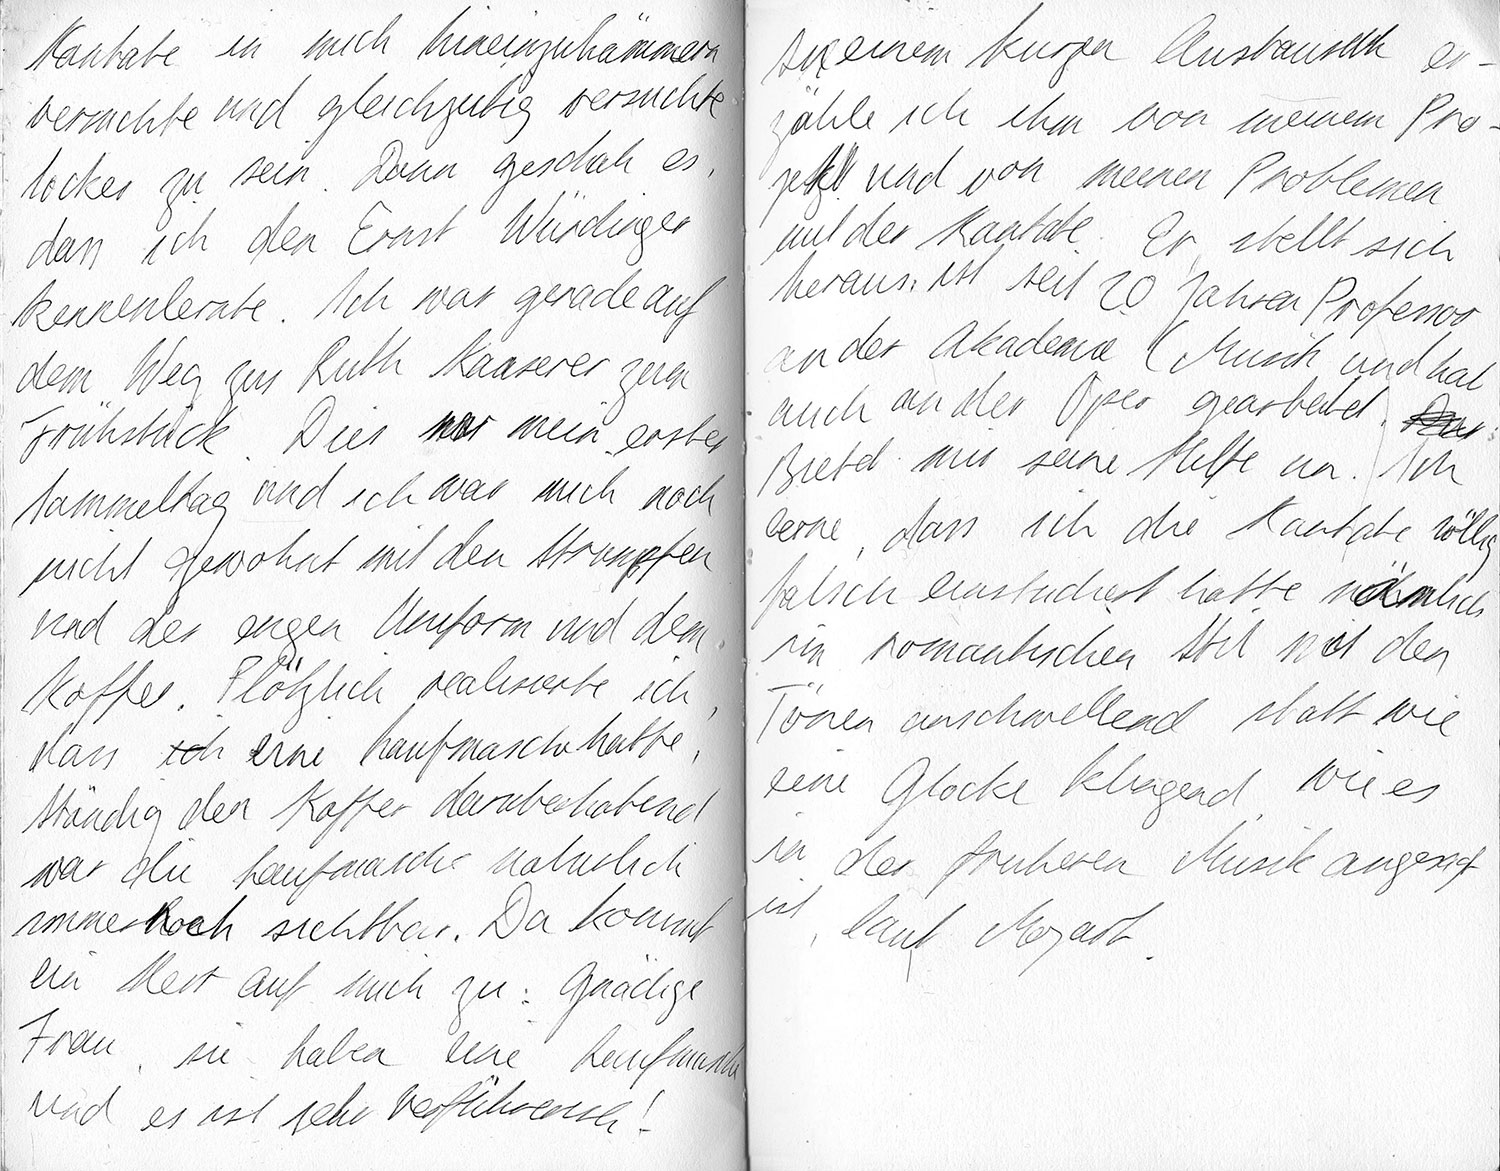 Kantate in mich hineinzuhämmern
versuchte und gleichzeitig versuchte
locker zu sein. Dann geschah es,
dass ich den Ernst Würdinger
kennenlernte. Ich war gerade auf
dem Weg zur Ruth Kaaserer zum
Frühstück. Dies war mein erster
Sammeltag und ich war mich noch
nicht gewohnt mit den Strümpfen
und der engen Uniform und dem
Koffer. Plötzlich realisierte ich,
dass ich eine Laufmasche hatte,
ständig den Koffer darüberhabend
war die Laufmasche natürlich
immer noch sichtbar. Da kommt
ein Herr auf mich zu: Gnädige
Frau, sie haben eine Laufmasche
und es ist sehr verführerisch!
einem kurzen Austausch er-
zähle ich ihm von meinem Pro-
jekt und von meinen Problemen
mit der Kantate. Er, stellt sich
heraus, ist seit 20 Jahren Professor
an der Akademie (Musik und hat
auch an der Oper gearbeitet.
Bietet mir seine Hilfe an. Ich
lerne, dass ich die Kantate völlig
falsch einstudiert hatte nämlich
im romantischen Stil mit den
Tönen anschwellend statt wie
eine Glocke klingend, wie es
in der früheren Musik angesagt
ist, laut Mozart.